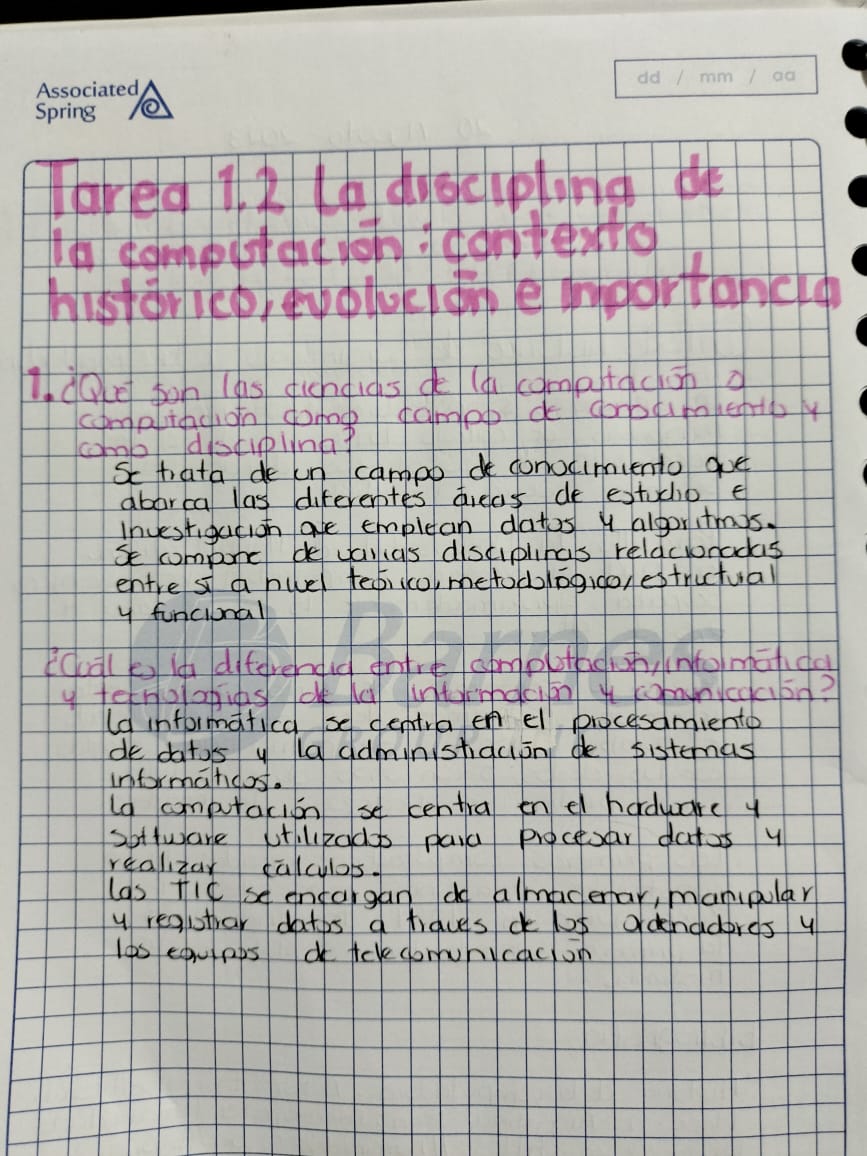 Associated
Spring
dd / mm / aa
Tarea 1.2 La disciplina de
la computación: contexto
histórico, evolución e importancia
1. ¿Qué son las ciencias de la computación o
computación como campo de conocimiento y
como disciplina?
Se trata de un campo de conocimiento que
abarca las diferentes áreas de estudio e
Investigación que emplean datos y algoritmos.
Se compone de varias disciplinas relacionadas
entre sí a nivel teórico, metodológico, estructural
y funcional
Barnes
¿Cuál es la diferencia entre computación, informática
y tecnologías de la información y comunicación?
La informática se centra en el procesamiento
de datos y la administración de sistemas
informáticos.
La computación se centra en el hardware y
software utilizados para procesar datos y
realizar cálculos.
Las TIC se encargan de almacenar, manipular
y registrar datos a traves de los ordenadores y
los equipos de telecomunicación